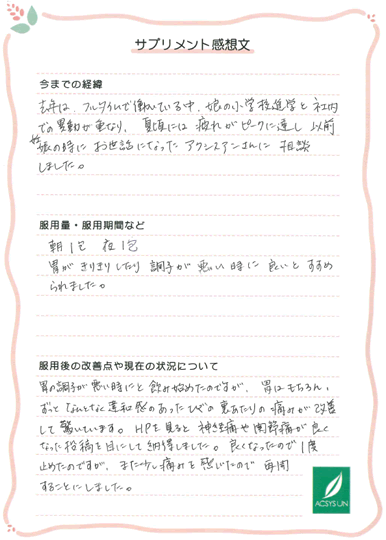 サプリメント感想文
今までの経緯
去年は、フルタイムで働いている中、娘の小学校進学と社内
での異動が重なり、夏頃には疲れがピークに達し以前
妊娠の時にお世話になったアクシスアンさんに相談
しました。
服用量・服用期間など
朝1包 夜1包
胃がきりきりしたり調子が悪い時に良いとすすめ
られました。
服用後の改善点や現在の状況について
胃の調子が悪い時にと飲み始めたのですが、胃はもちろん、
ずっとなんとなく違和感のあったひざの裏あたりの痛みが改善
して驚いています。HPを見ると神経痛や関節痛が良く
なった投稿を目にして納得しました。良くなったので1度
止めたのですが、また少し痛みを感じたので再開
することにしました。
ACSYS UN